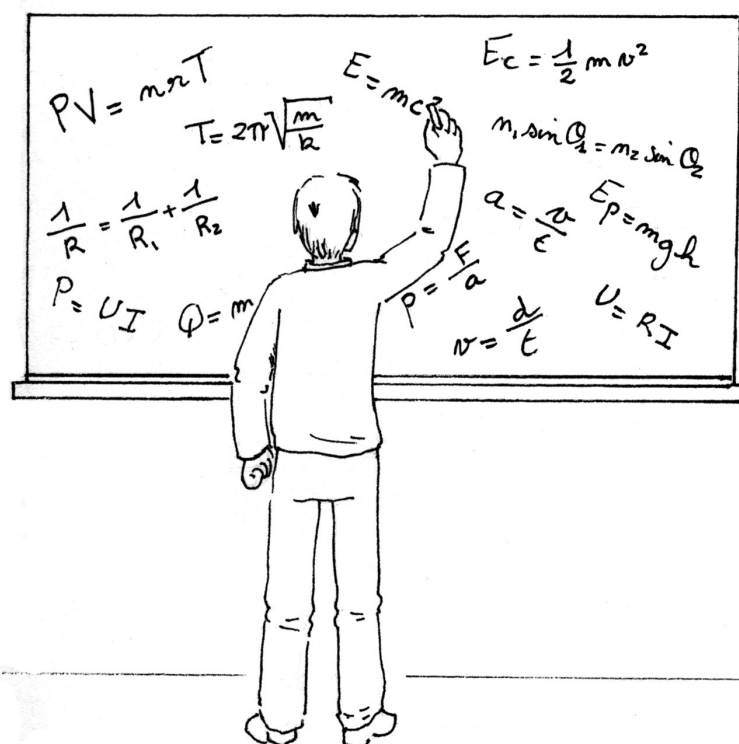 PV = nrT
E = mc²
Ec = 1/2 mv²
T = 2π√(m/k)
n₁ sin θ₁ = n₂ sin θ₂
1/R = 1/R₁ + 1/R₂
a = v/t
Ep = mgh
P = UI
Q = m
P = F/a
v = d/t
U = RI